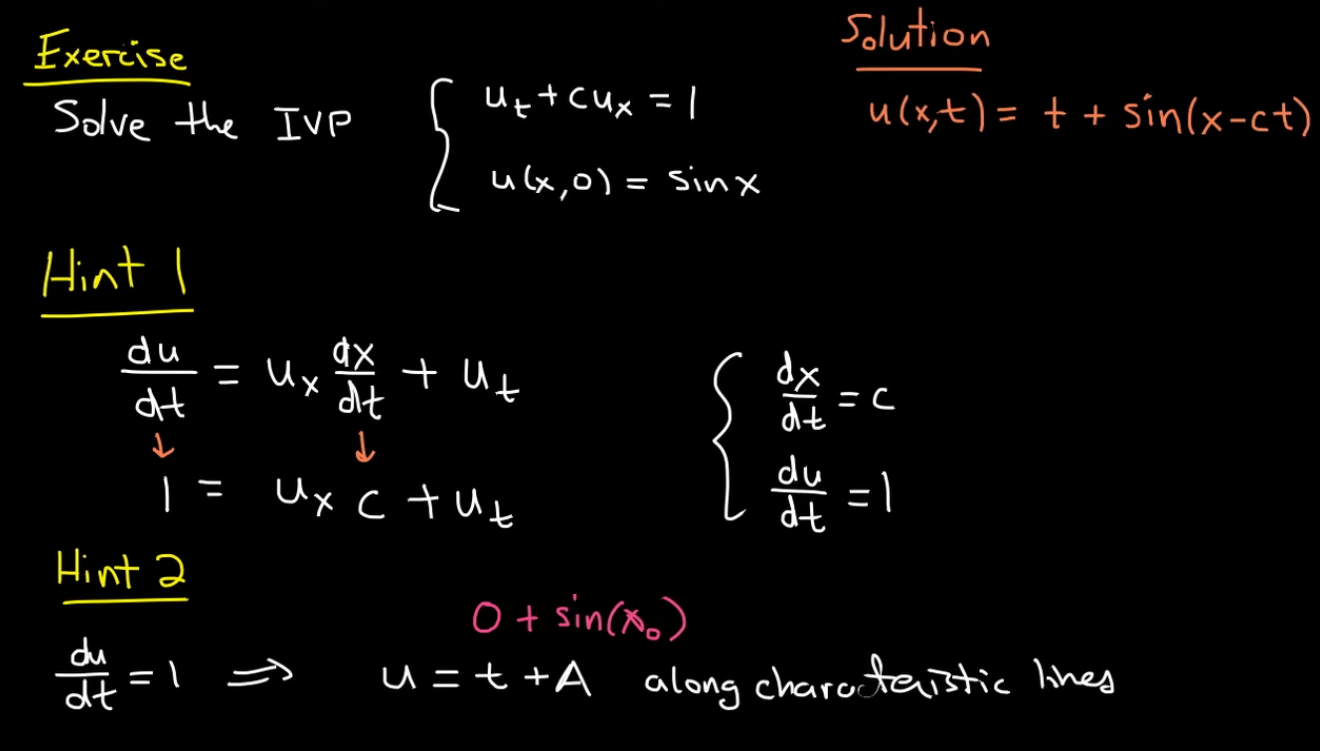 Exercise
Solve the IVP
u_t + cu_x = 1
u(x,0) = sin x
Solution
u(x,t) = t + sin(x-ct)
Hint 1
du/dt = u_x dx/dt + u_t
↓ ↓
1 = u_x c + u_t
dx/dt = c
du/dt = 1
Hint 2
0 + sin(x_0)
du/dt = 1 ⇒ u = t + A along characteristic lines